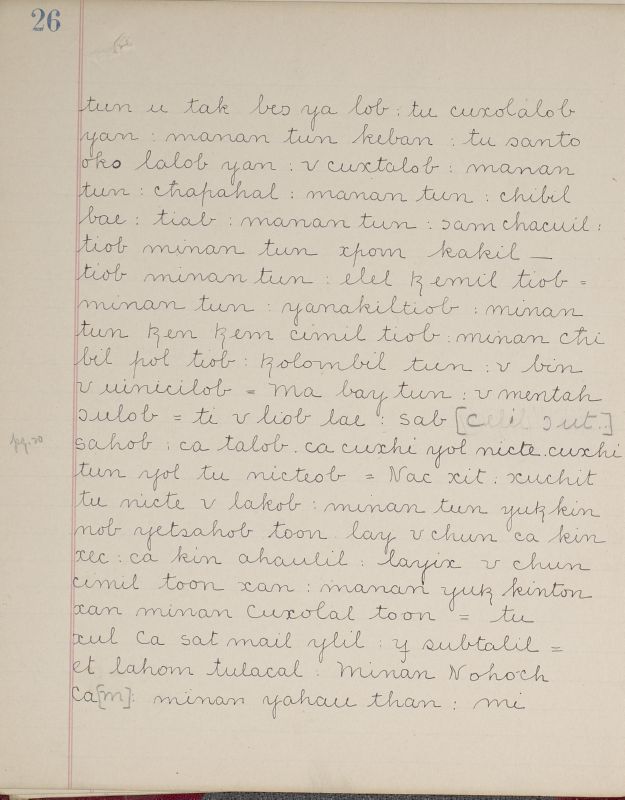 26
tun u tak bes ya lob : tu cuxolalob
yan : manan tun keban : tu santo
oko lalob yan : v cuxtalob : manan
tun : chapahal : manan tun : chibil
bac : tiab : manan tun : sam chacuil :
tiob minan tun xpom kakil —
tiob minan tun : elel ꜩemil tiob =
minan tun : yanakiltiob : minan
tun ꜩen ꜩem cimil tiob : minan chi
bil pol tiob : ꜩolombil tun : v bin
v uinicilob = Ma bay tun : v mentah
ɔulob = ti v liob lae : sab [celil ɔut.]
sahob : ca talob . ca cuxhi yol nicte . cuxhi
pg. 20
tun yol tu nicteob = Nac xit : xuchit
tu nicte v lakob : minan tun yuꜩ kin
nob yetsahob toon . lay v chun ca kin
xec : ca kin ahaulil : layix v chun
cimil toon xan : manan yuꜩ kinton
xan minan Cuxolal toon = tu
xul Ca sat mail ylil : y subtalil =
et lahom tulacal : Minan Nohoch
Ca[m] : minan yahau than : mi